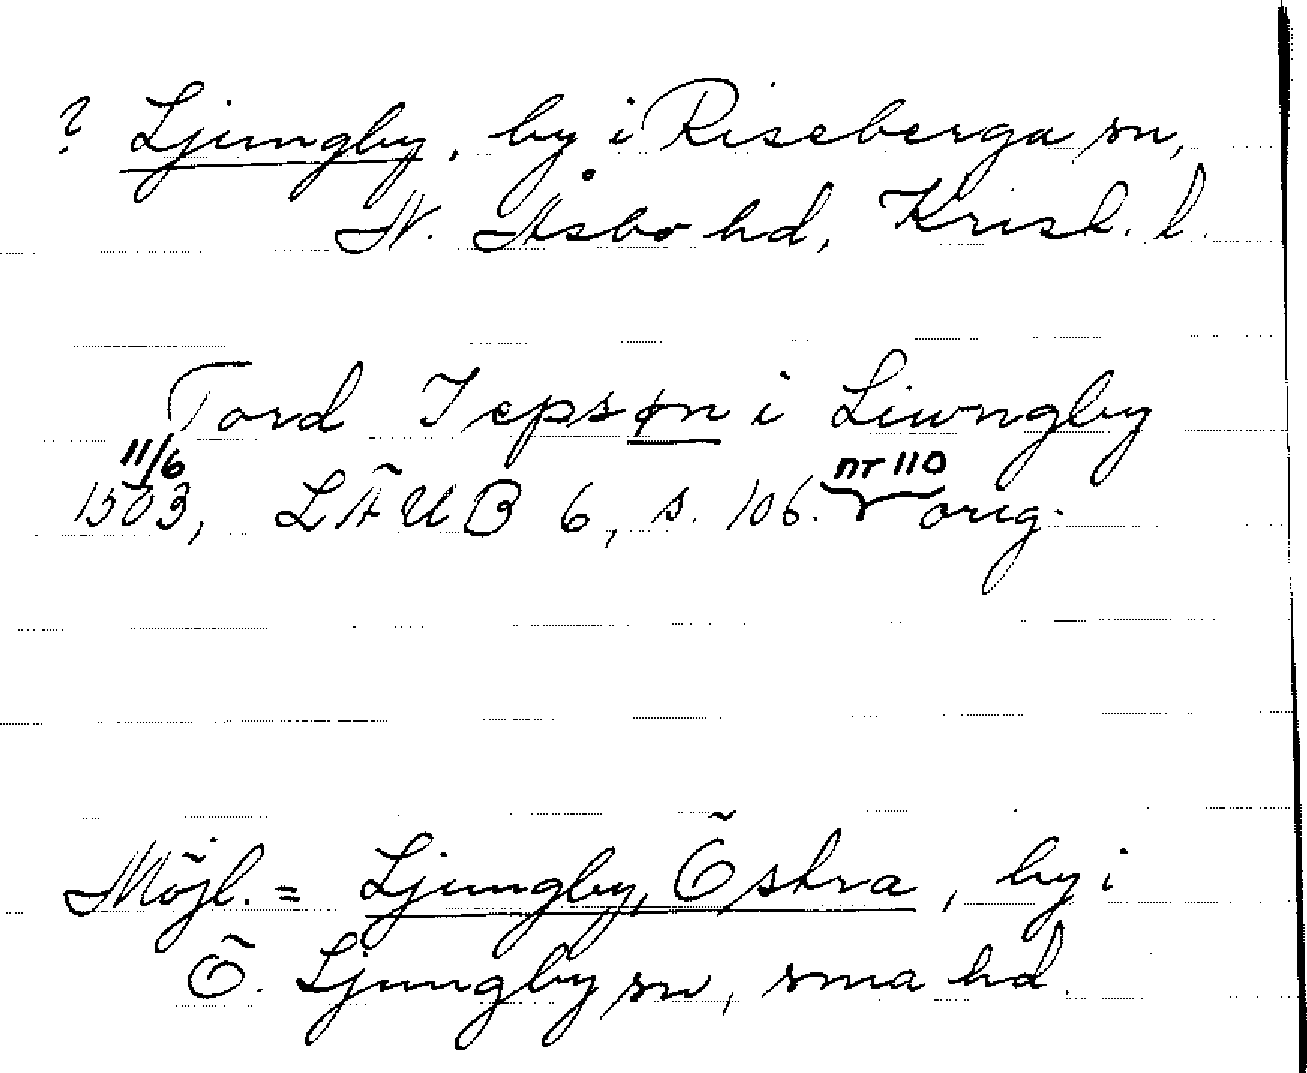 ? Ljungby, by i Riseberga sn,
N. Åsbo hd, Krist. l.
Tord Jepsøn i Liwngby
11/6 nr 110
1503, LÄUB 6, s. 106. orig.
Möjl. = Ljungby, Östra, by i
Ö. Ljungby sn, sma hd.